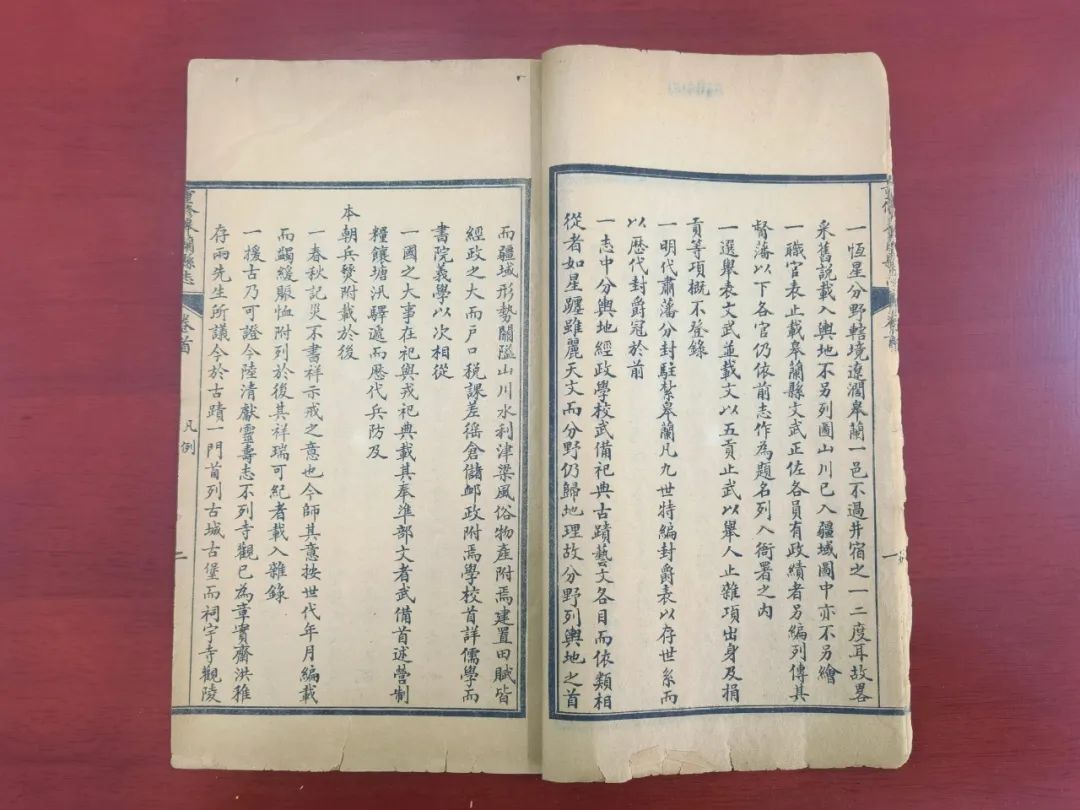 一恆星分野轄境遼濶皋蘭一邑不過井宿之一二度耳故畧
采舊說載入輿地不另列圖山川已入疆域圖中亦不另繪
一職官表止載皋蘭縣文武正佐各員有政績者另編列傳其
督藩以下各官仍依前志作為題名列入衙署之內
一選舉表文武並載文以五貢止武以舉人止雜項出身及捐
貢等項概不登錄
一明代肅藩分封駐紮皋蘭凡九世特編封爵表以存世系而
以歷代封爵冠於前
一志中分輿地經政學校武備祀典古蹟藝文各目而依類相
從者如星躔雖麗天文而分野仍歸地理故分野列輿地之首
而疆域形勢關隘山川水利津梁風俗物產附焉建置田賦皆
經政之大而戶口稅課差徭倉儲郵政附焉學校首詳儒學而
書院義學以次相從
一國之大事在祀與戎祀典載其奉準部文者武備首述營制
糧饟塘汛驛遞而歷代兵防及
本朝兵燹附載於後
一春秋記災不書祥示戒之意也今師其意按世代年月編載
而蠲緩賑恤附列於後其祥瑞可紀者載入雜錄
一援古乃可證今陸清獻靈壽志不列寺觀已為章實齋洪稚
存兩先生所議今於古蹟一門首列古城古堡而祠宇寺觀陵
重修皋蘭縣志
卷首
凡例
二